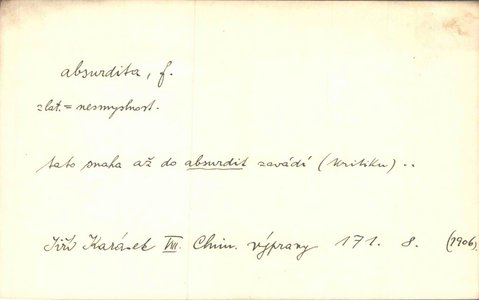 absurdita, f.
z lat. = nesmyslnost.
tato snaha až do absurdit zavádí (kritiku) ..
Jiří Karásek Chim. výpravy 171. 8. (1906)